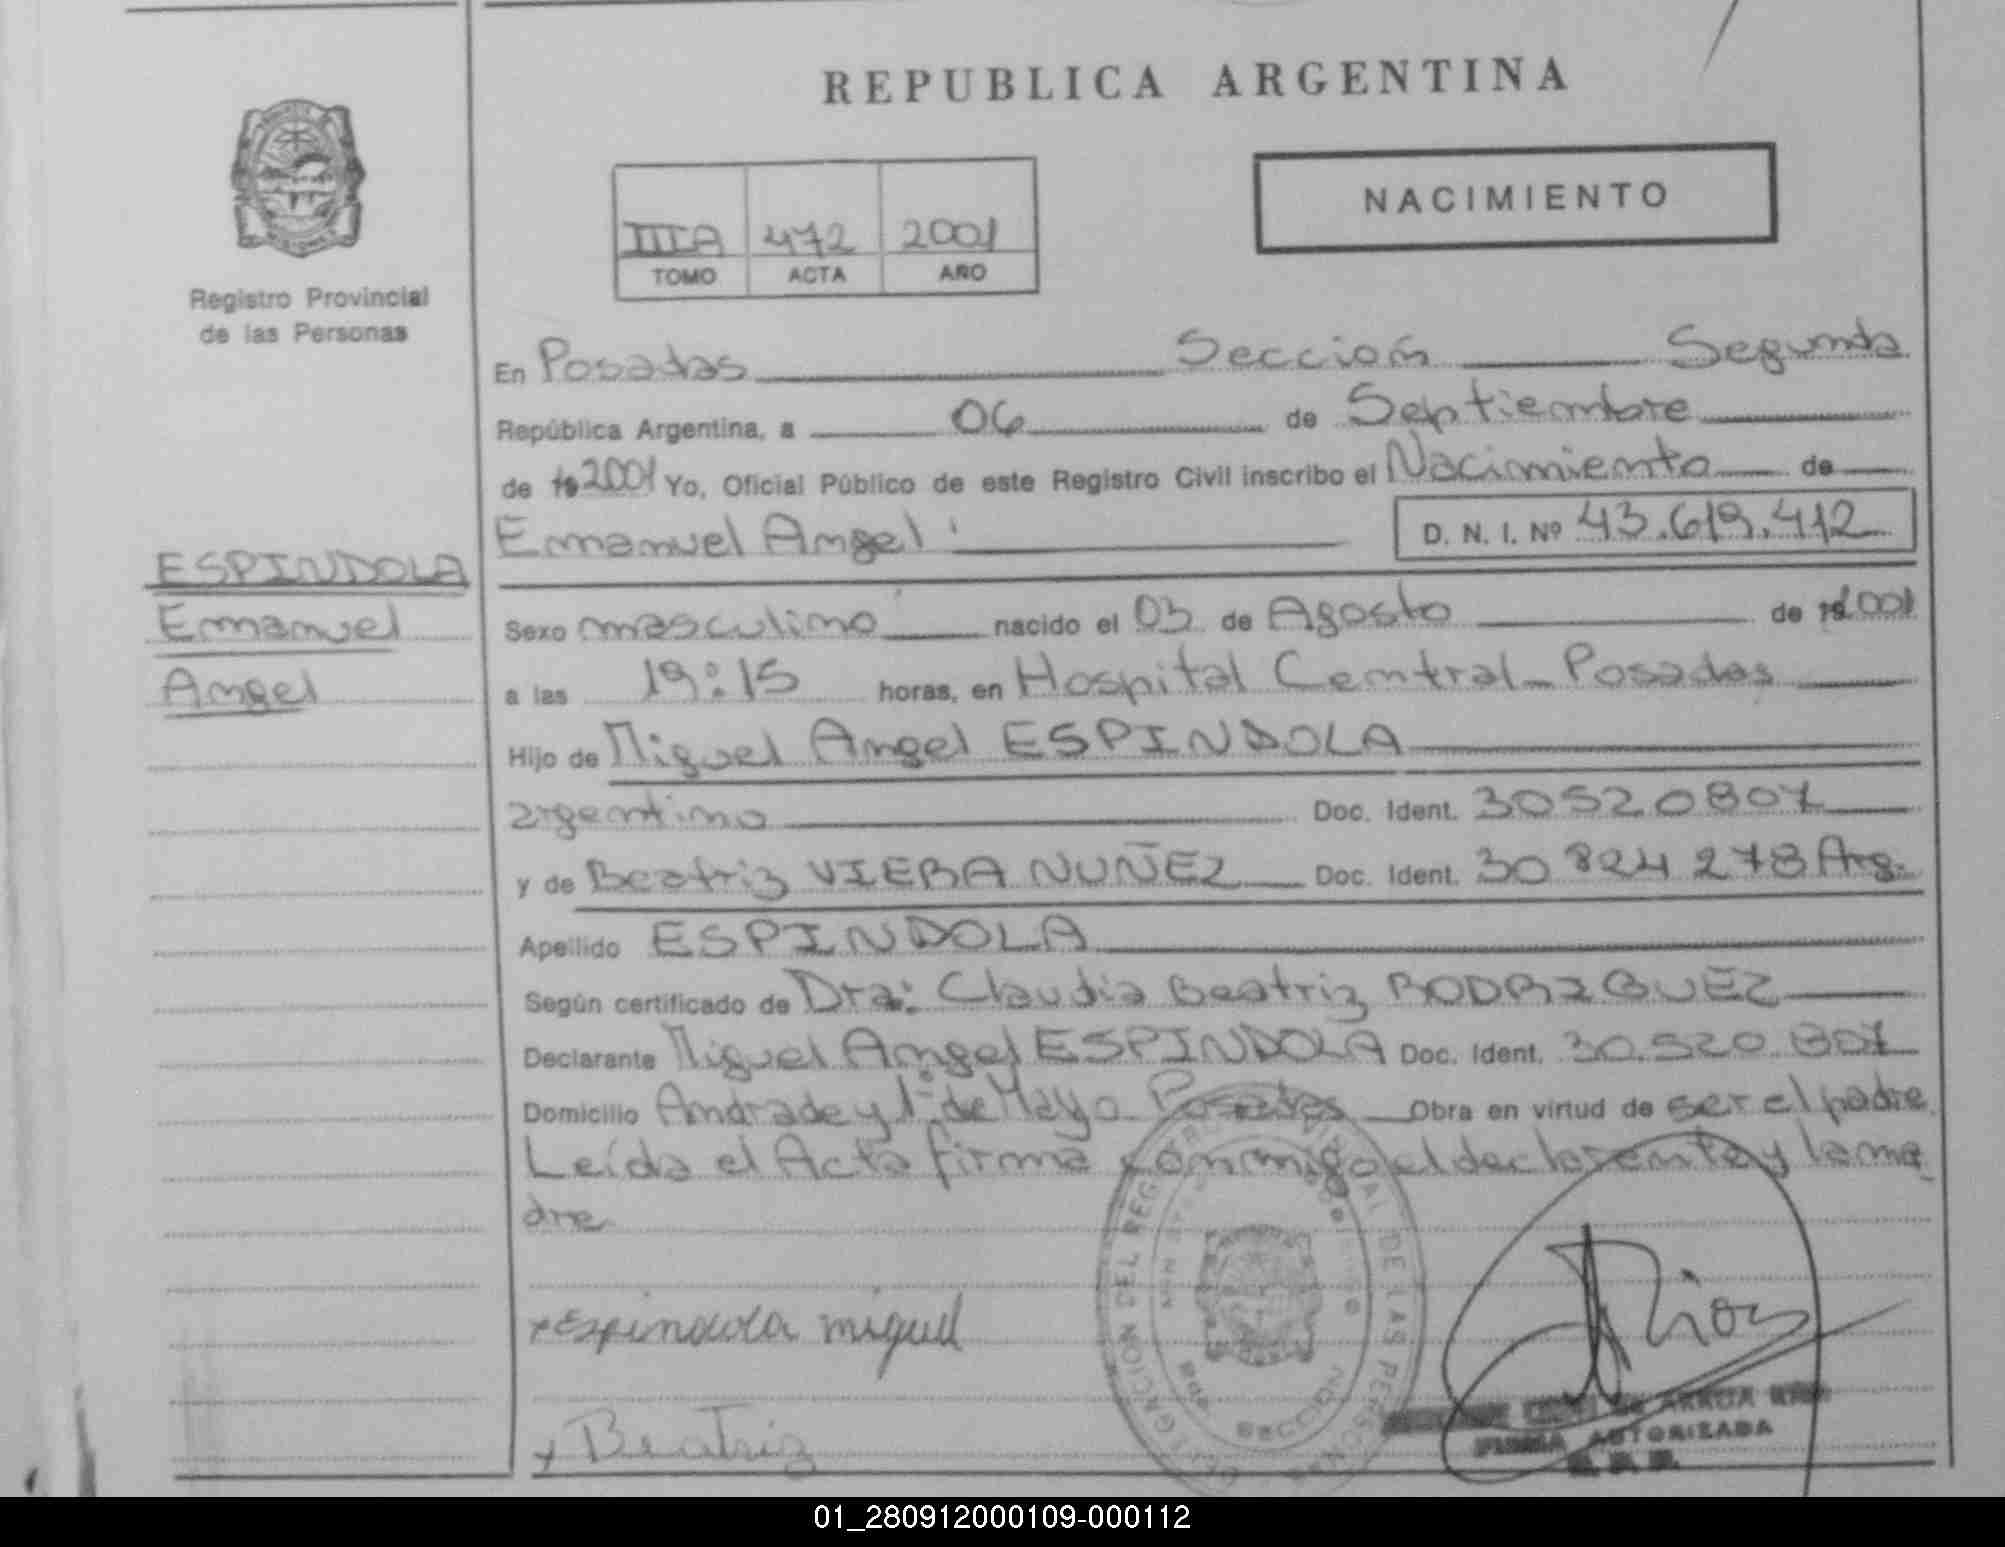 REPUBLICA ARGENTINA
NACIMIENTO
IIIA 472 2001
TOMO ACTA AÑO
Registro Provincial
de las Personas
En Posadas Sección Segunda
República Argentina, a 06 de Septiembre
de 19 2001 Yo, Oficial Público de este Registro Civil inscribo el Nacimiento de
Emmanuel Angel D. N. I. Nº 43.619.412
ESPINDOLA
Emmanuel
Angel
Sexo masculino nacido el 03 de Agosto de 2001
a las 19:15 horas, en Hospital Central - Posadas
Hijo de Miguel Angel ESPINDOLA
argentino Doc. Ident. 30520807
y de Beatriz VIERA NUÑEZ Doc. Ident. 30 824 278 Arg.
Apellido ESPINDOLA
Según certificado de Dra: Claudia Beatriz RODRIGUEZ
Declarante Miguel Angel ESPINDOLA Doc. Ident. 30.520.807
Domicilio Andrade y 1º de Mayo Posadas Obra en virtud de ser el padre
Leída el Acta firma conmigo el declarante y la ma
dre
x Espindola miguel
x Beatriz
Rios
DELEGACION DEL REGISTRO PROVINCIAL DE LAS PERSONAS
2da. SECCION
FIRMA AUTORIZADA
01_280912000109-000112